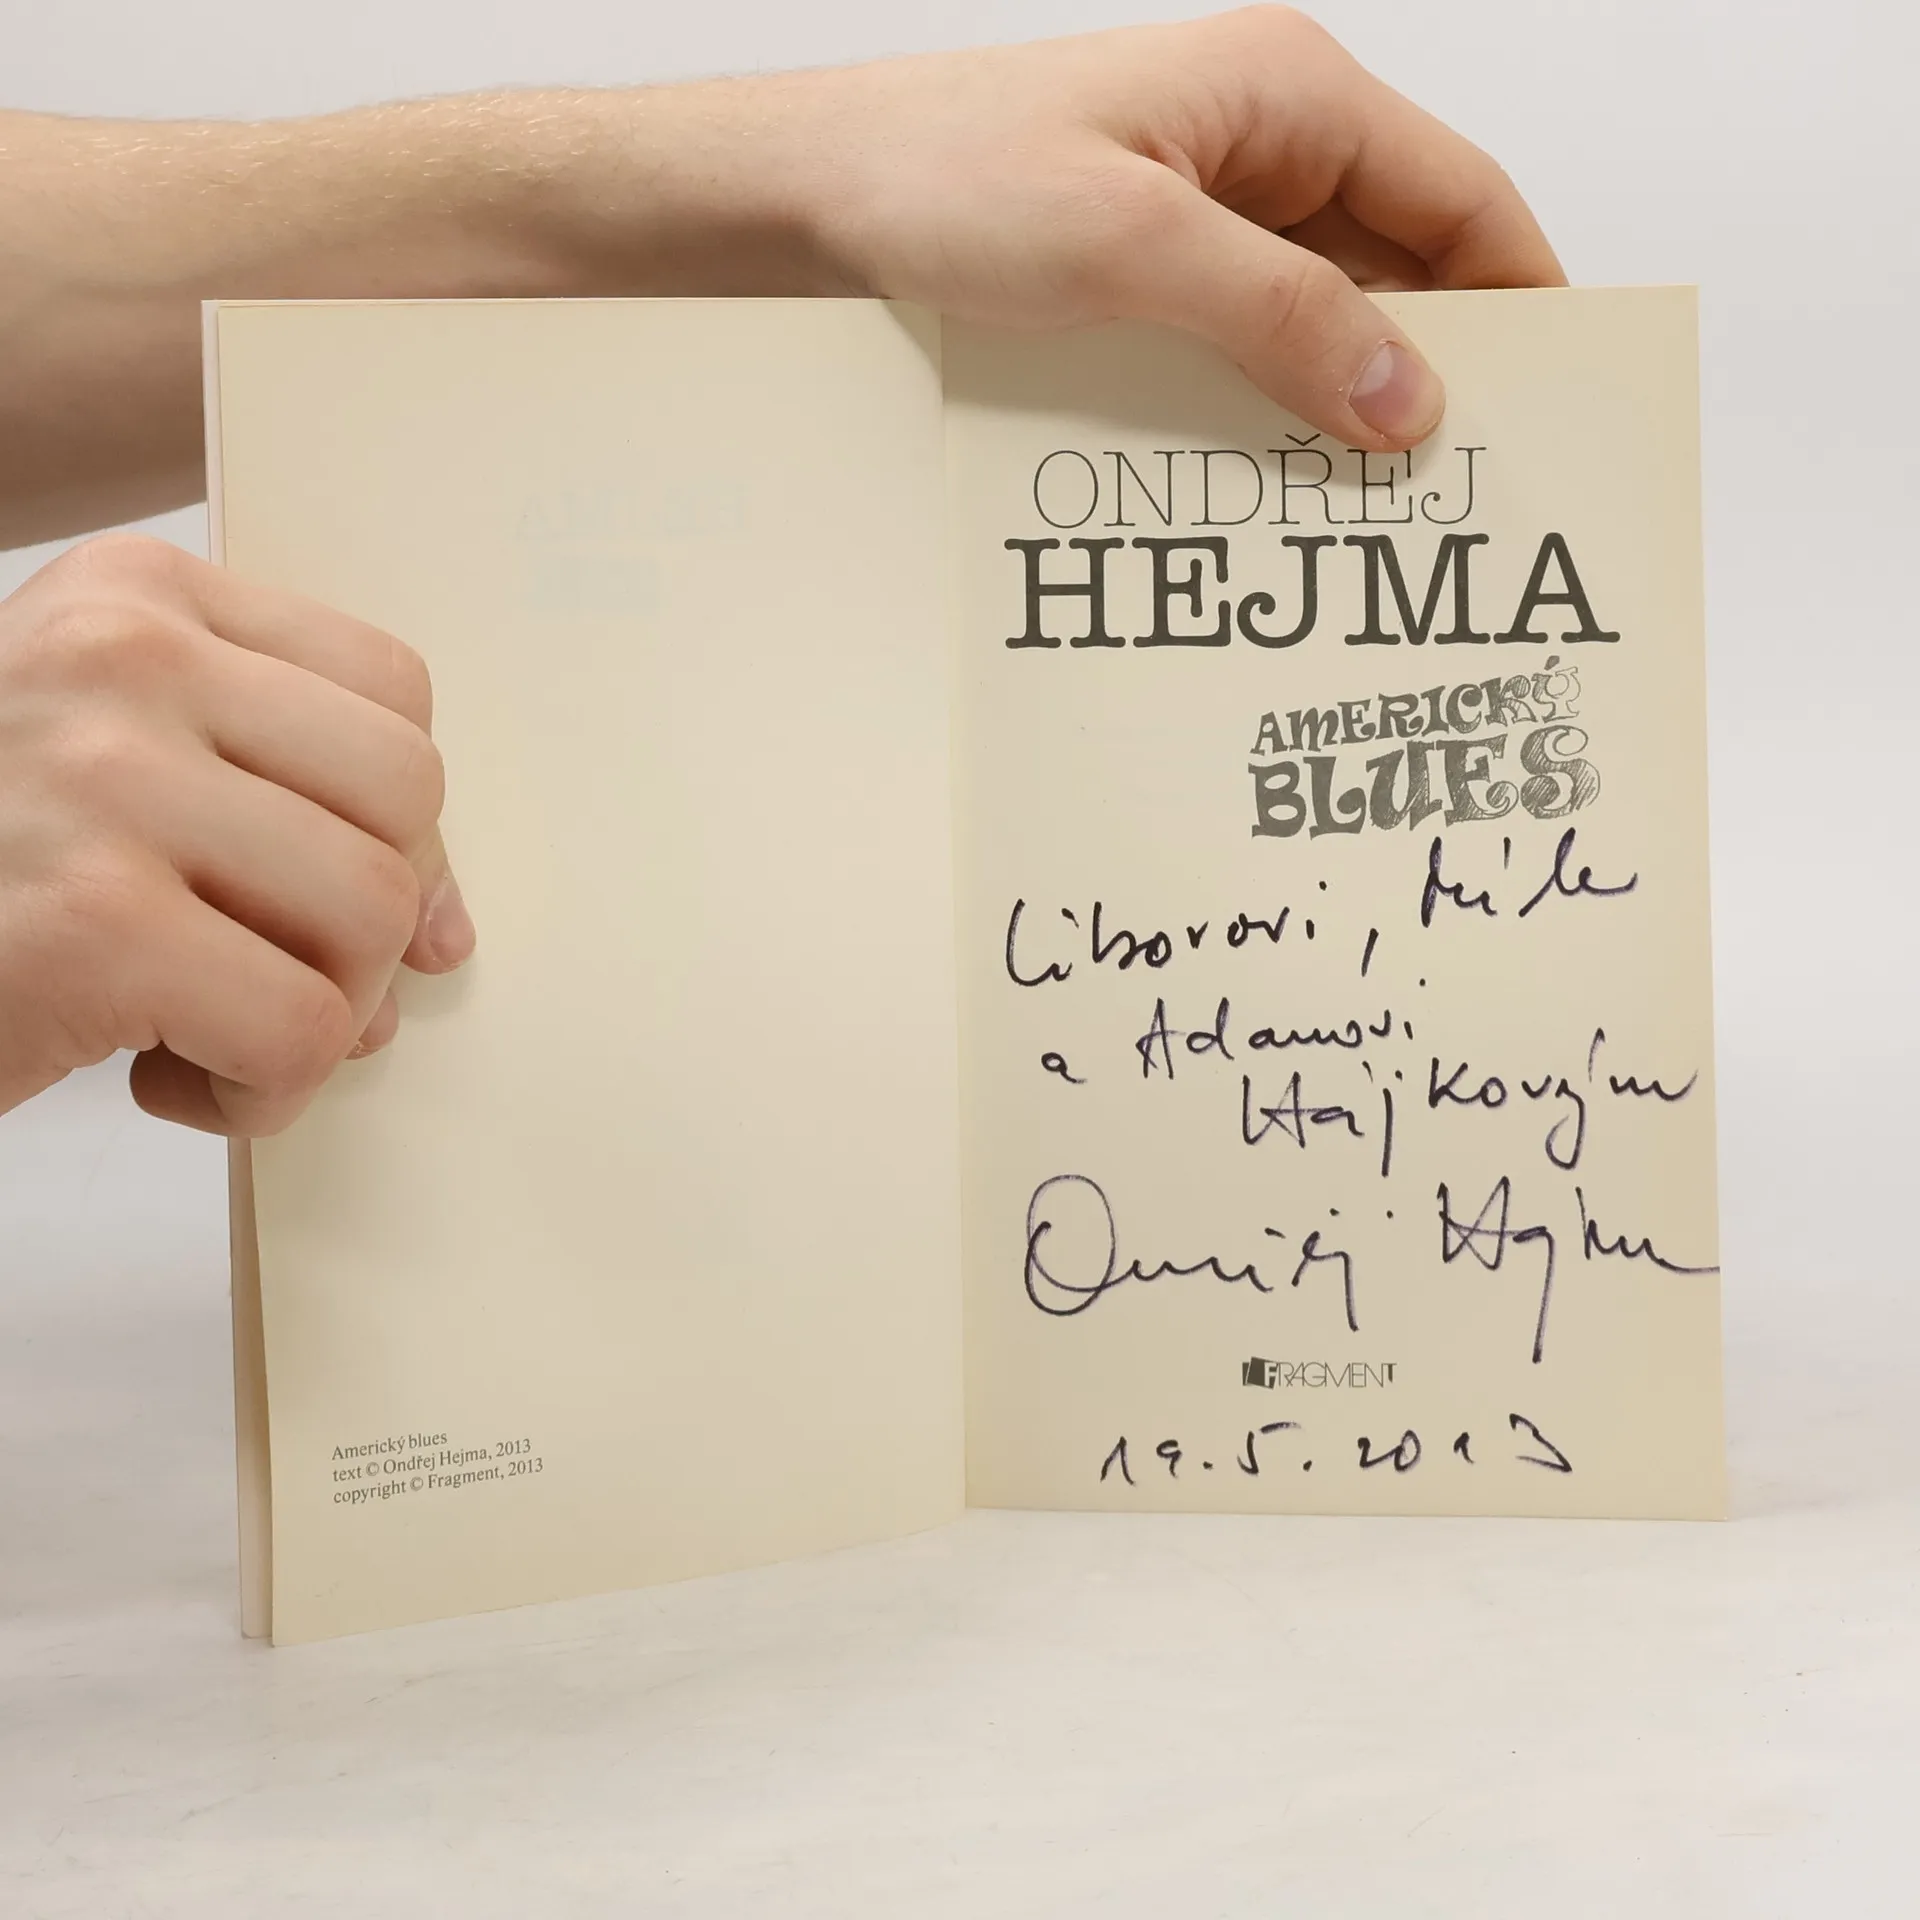 Americký blues
text © Ondřej Hejma, 2013
copyright © Fragment, 2013
ONDŘEJ
HEJMA
AMERICKÝ
BLUES
Liborovi,
a Adamovi
Hájkovým
Ondřej Hejma
FRAGMENT
19.5.2013